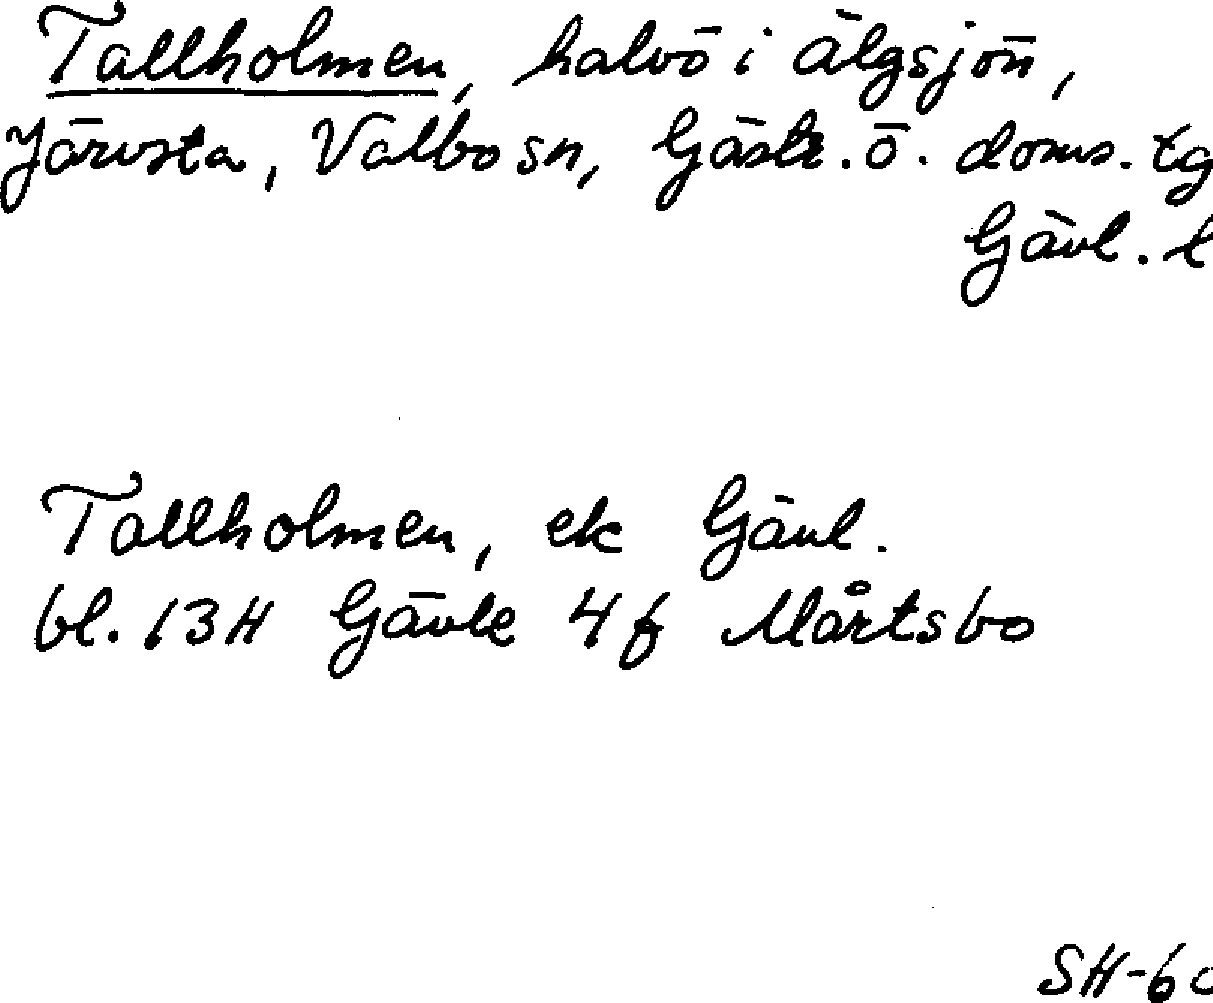 Tallholmen, halvö i älgsjön,
Järvsta, Valbo sn, Gästr. ö. doms. tg
Gävl. l
Tallholmen, ek Gävl.
bl. 13H Gävle 4f Mårtsbo
SH-60